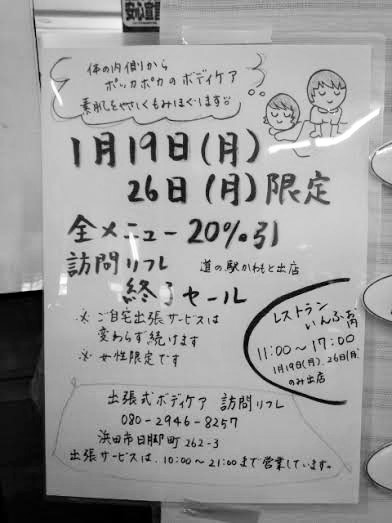 安心宣言
体の内側から
ポッカポカのボディケア
素肌をやさしくもみほぐします
1月19日(月)
26日(月)限定
全メニュー20%引
訪問リフレ 道の駅かわもと出店
終了セール
※ご自宅出張サービスは
変わらず続けます
※女性限定です
レストラン
いんふぉ内
11:00～17:00
1月19日(月)、26日(月)
のみ出店
出張式ボディケア 訪問リフレ
080-2946-8257
浜田市日脚町262-3
出張サービスは、10:00～21:00まで営業しています。